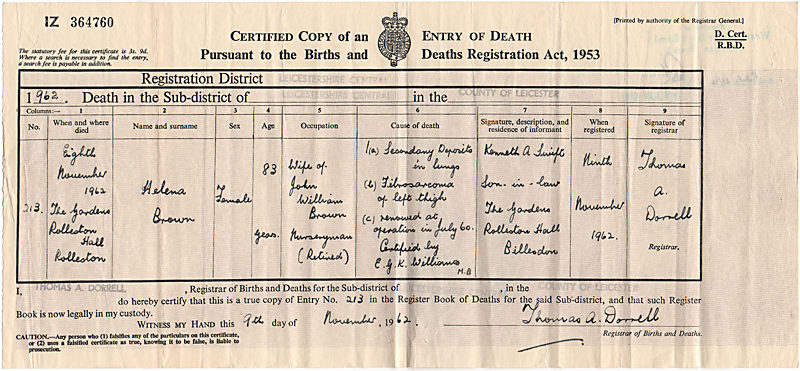 IZ 364760
[Printed by authority of the Registrar General.]
CERTIFIED COPY of an ENTRY OF DEATH
Pursuant to the Births and Deaths Registration Act, 1953
D. Cert.
R.B.D.
The statutory fee for this certificate is 3s. 9d.
Where a search is necessary to find the entry,
a search fee is payable in addition.
Registration District LEICESTERSHIRE CENTRAL
1962. Death in the Sub-district of LEICESTERSHIRE CENTRAL in the COUNTY OF LEICESTER
Columns:— 1 2 3 4 5 6 7 8 9
No. When and where died Name and surname Sex Age Occupation Cause of death Signature, description, and residence of informant When registered Signature of registrar
213.
Eighth
November
1962
The Gardens
Rolleston
Hall
Rolleston
Helena
Brown
Female
83
years.
Wife of
John
William
Brown
Nurseryman
(Retired)
1(a) Secondary Deposits
in lungs
(b) Fibrosarcoma
of left thigh
(c) removed at
operation in July 60.
Certified by
E.G.K. Williams
M.B
Kenneth A Swift
Son-in-law
The Gardens
Rolleston Hall
Billesdon
Ninth
November
1962.
Thomas
A.
Dorrell
Registrar.
I, THOMAS A. DORRELL, Registrar of Births and Deaths for the Sub-district of LEICESTERSHIRE CENTRAL, in the COUNTY OF LEICESTER
do hereby certify that this is a true copy of Entry No. 213 in the Register Book of Deaths for the said Sub-district, and that such Register
Book is now legally in my custody.
WITNESS MY HAND this 9th day of November, 1962. Thomas A. Dorrell
Registrar of Births and Deaths.
CAUTION.—Any person who (1) falsifies any of the particulars on this certificate,
or (2) uses a falsified certificate as true, knowing it to be false, is liable to
prosecution.